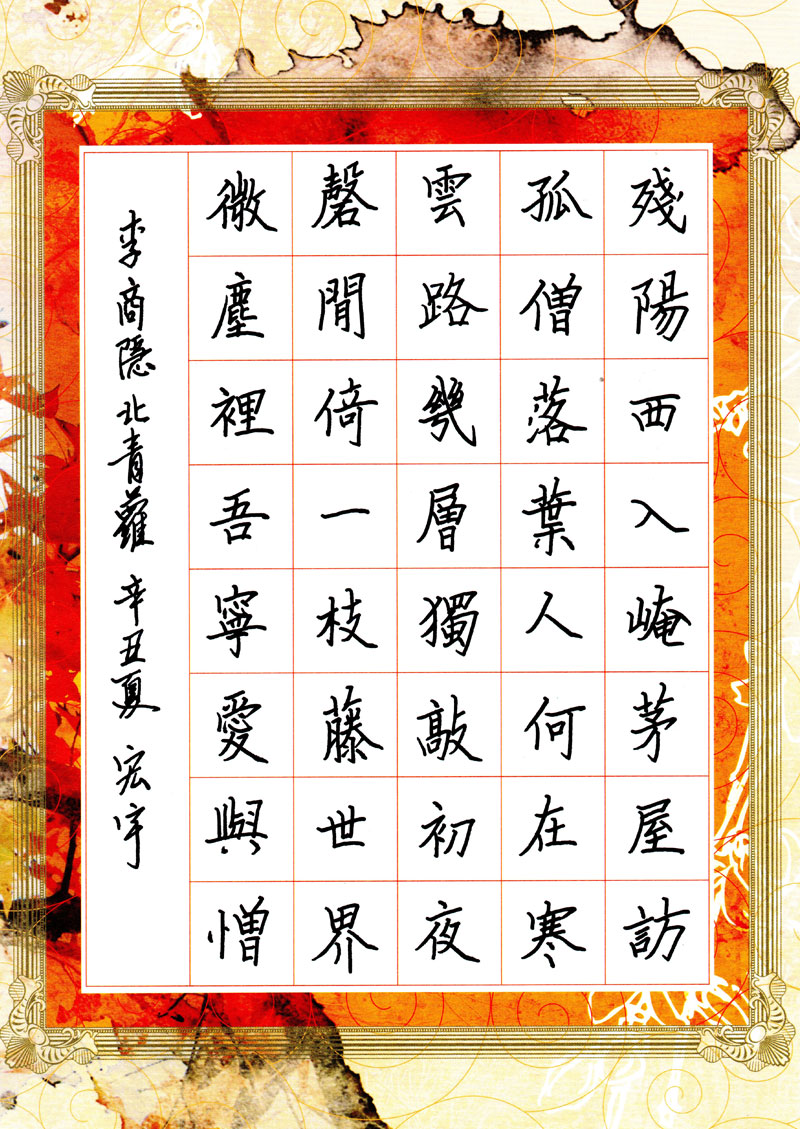 殘陽西入崦茅屋訪
孤僧落葉人何在寒
雲路幾層獨敲初夜
磬閒倚一枝藤世界
微塵裡吾寧愛與憎
李商隱北青蘿 辛丑夏 宏宇